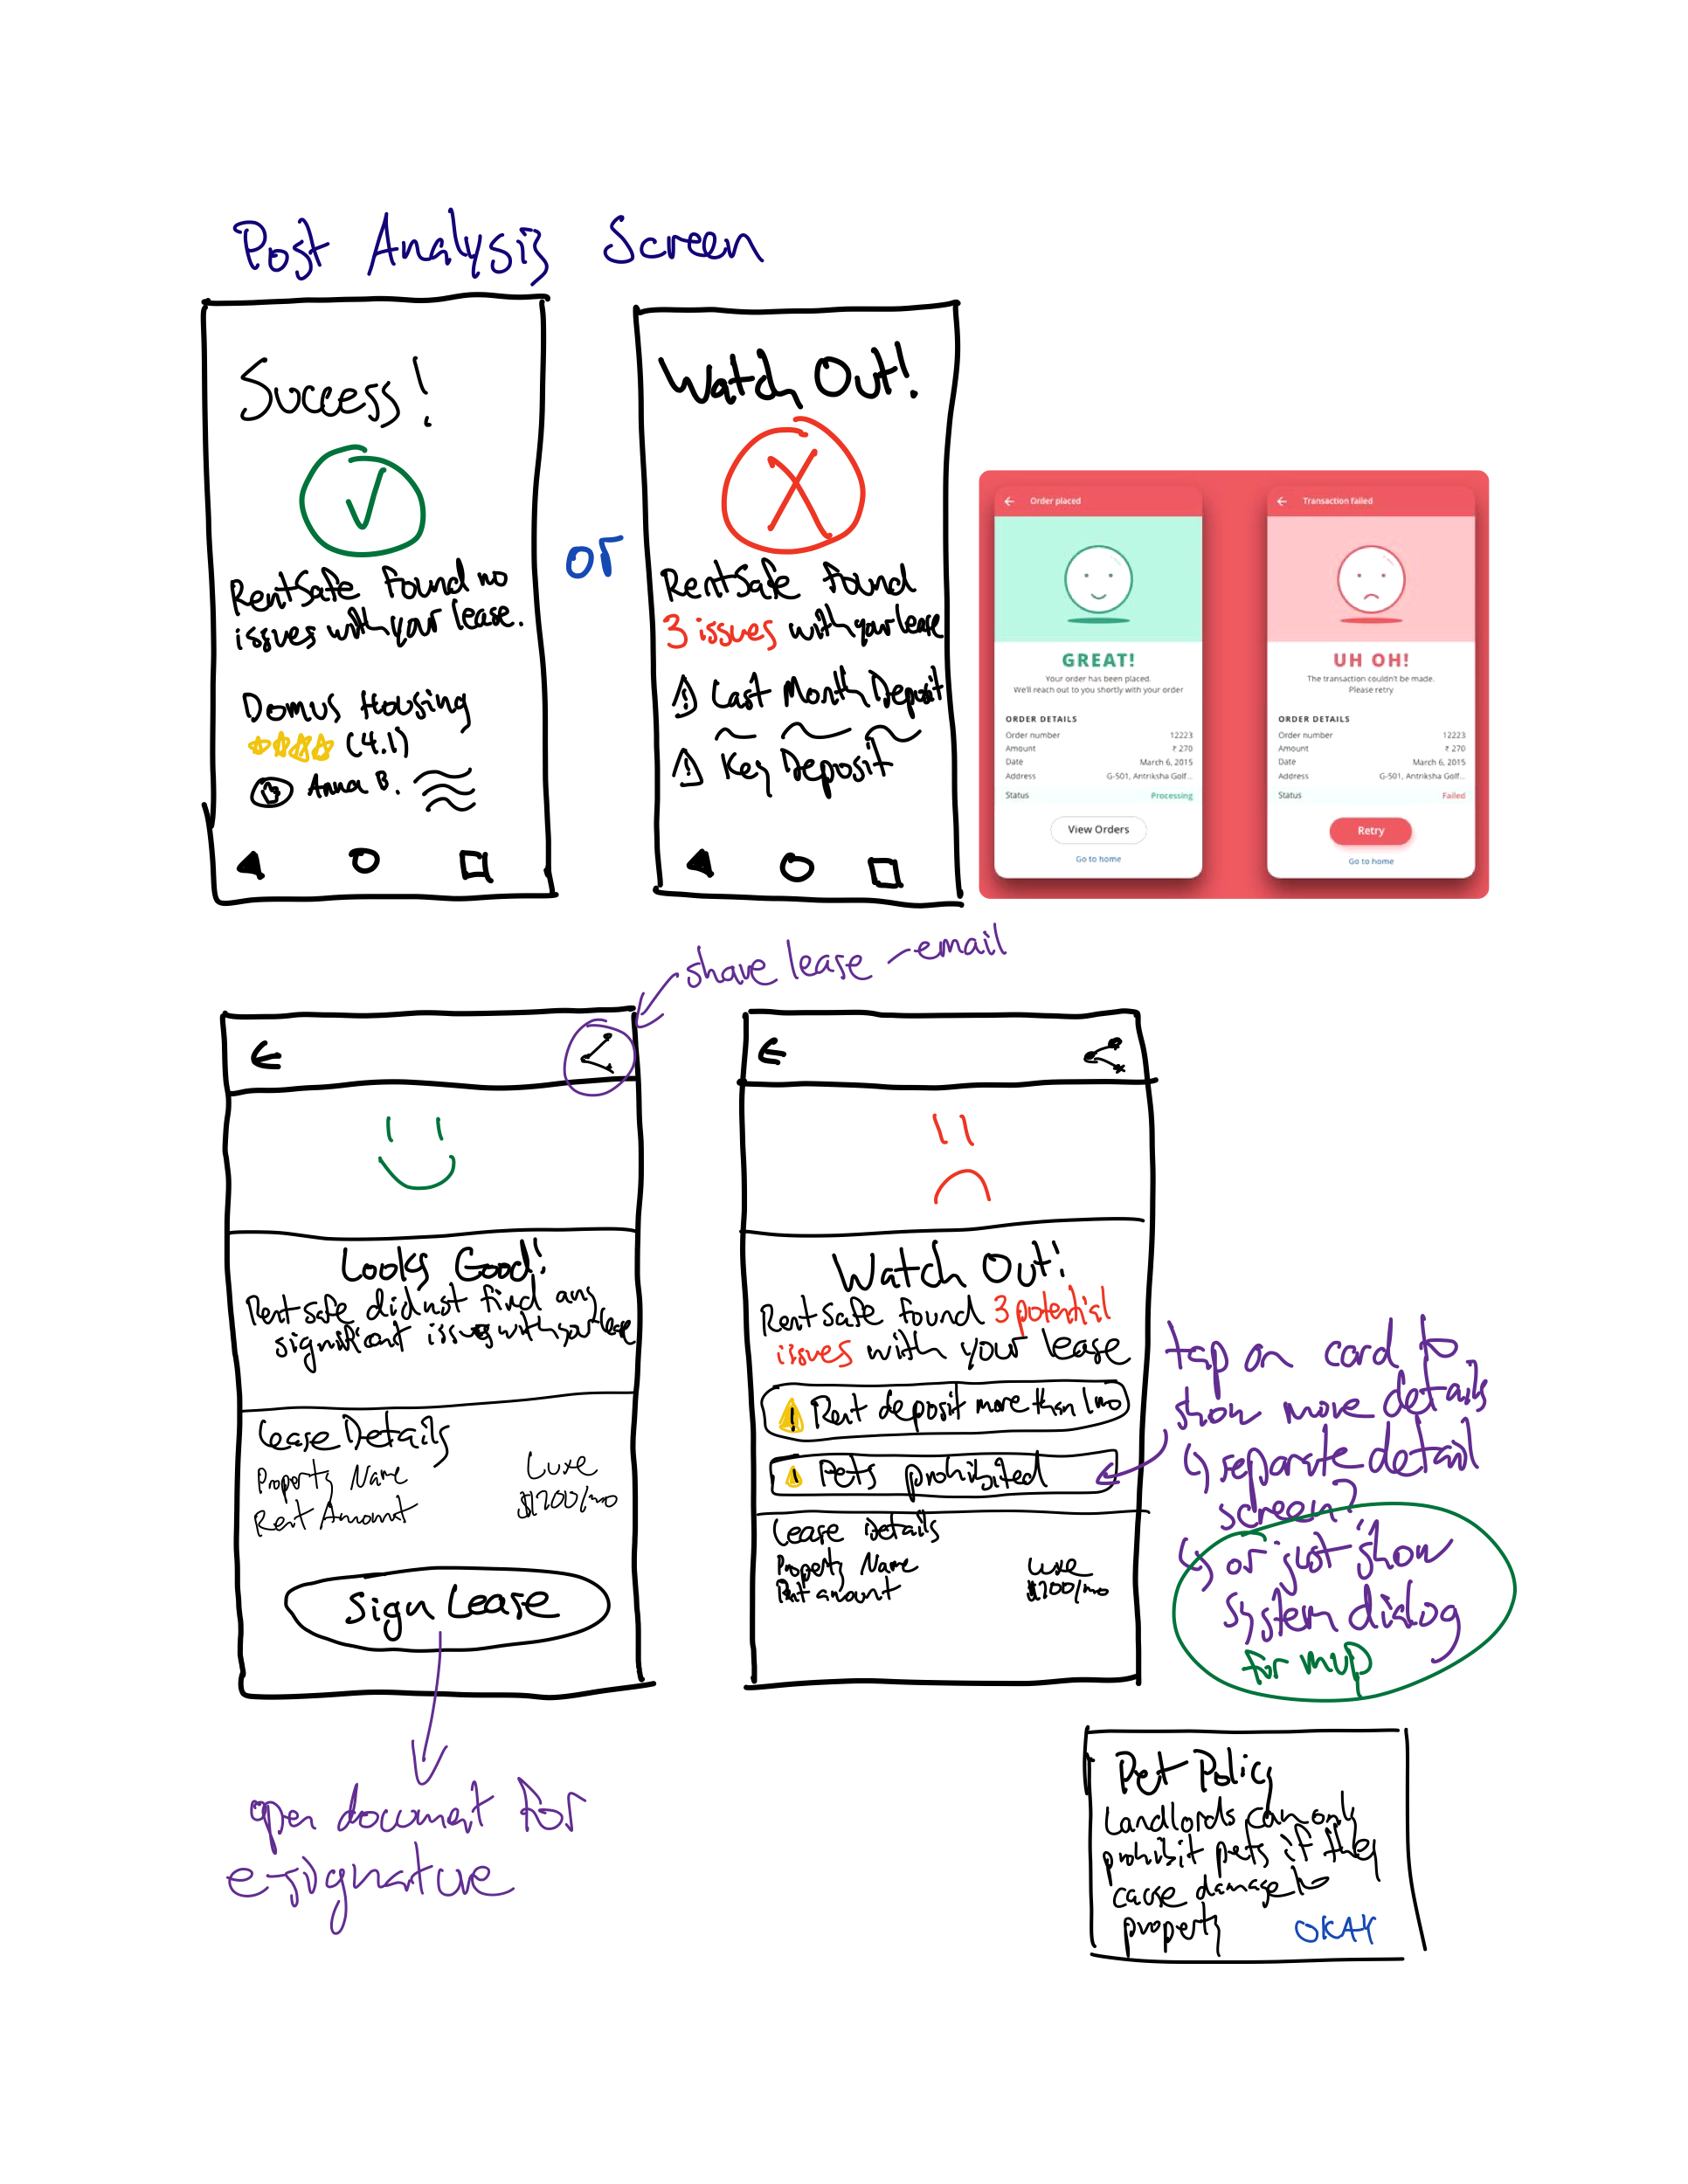 Post Analysis Screen
Success!
RentSafe found no
issues with your lease.
Domus Housing
(4.1)
Anna B.
or
Watch Out!
RentSafe found
3 issues with your lease
Last Month Deposit
Key Deposit
Order placed
GREAT!
Your order has been placed.
We'll reach out to you shortly with your order
ORDER DETAILS
Order number 12223
Amount ₹ 270
Date March 6, 2015
Address G-501, Antriksha Golf...
Status Processing
View Orders
Go to home
Transaction failed
UH OH!
The transaction couldn't be made.
Please retry
ORDER DETAILS
Order number 12223
Amount ₹ 270
Date March 6, 2015
Address G-501, Antriksha Golf...
Status Failed
Retry
Go to home
share lease - email
Looks Good!
Rentsafe did not find any
significant issues with your lease
Lease Details
Property Name Luxe
Rent Amount $1200/mo
Sign Lease
open document for
e-signature
Watch Out!
Rentsafe found 3 potential
issues with your lease
Rent deposit more than 1 mo
Pets prohibited
Lease Details
Property Name Luxe
Rent amount $1200/mo
tap on card to
show more details
↳ separate detail
screen?
↳ or just show
system dialog
for mvp
Pet Policy
Landlords can only
prohibit pets if they
cause damage to
property OKAY